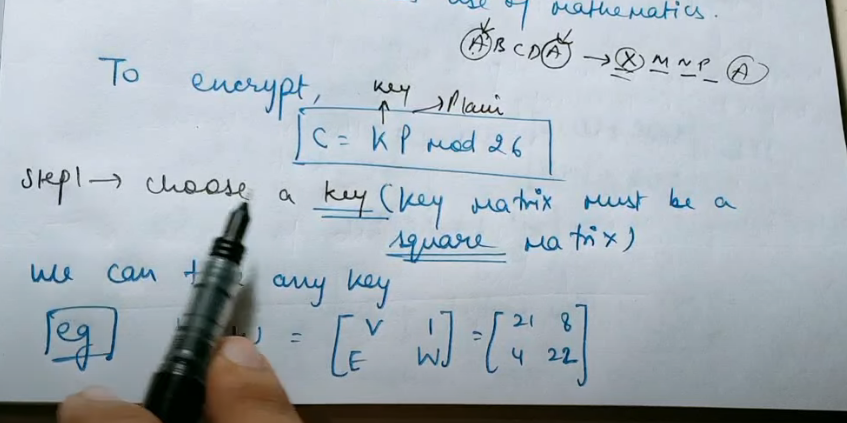 use of mathematics.
A B C D A → X M N P A
To encrypt,
key → Plain
C = K P mod 26
Step1 → choose a key (key matrix must be a
square matrix)
we can any key
eg = [V I E W] = [21 8 4 22]